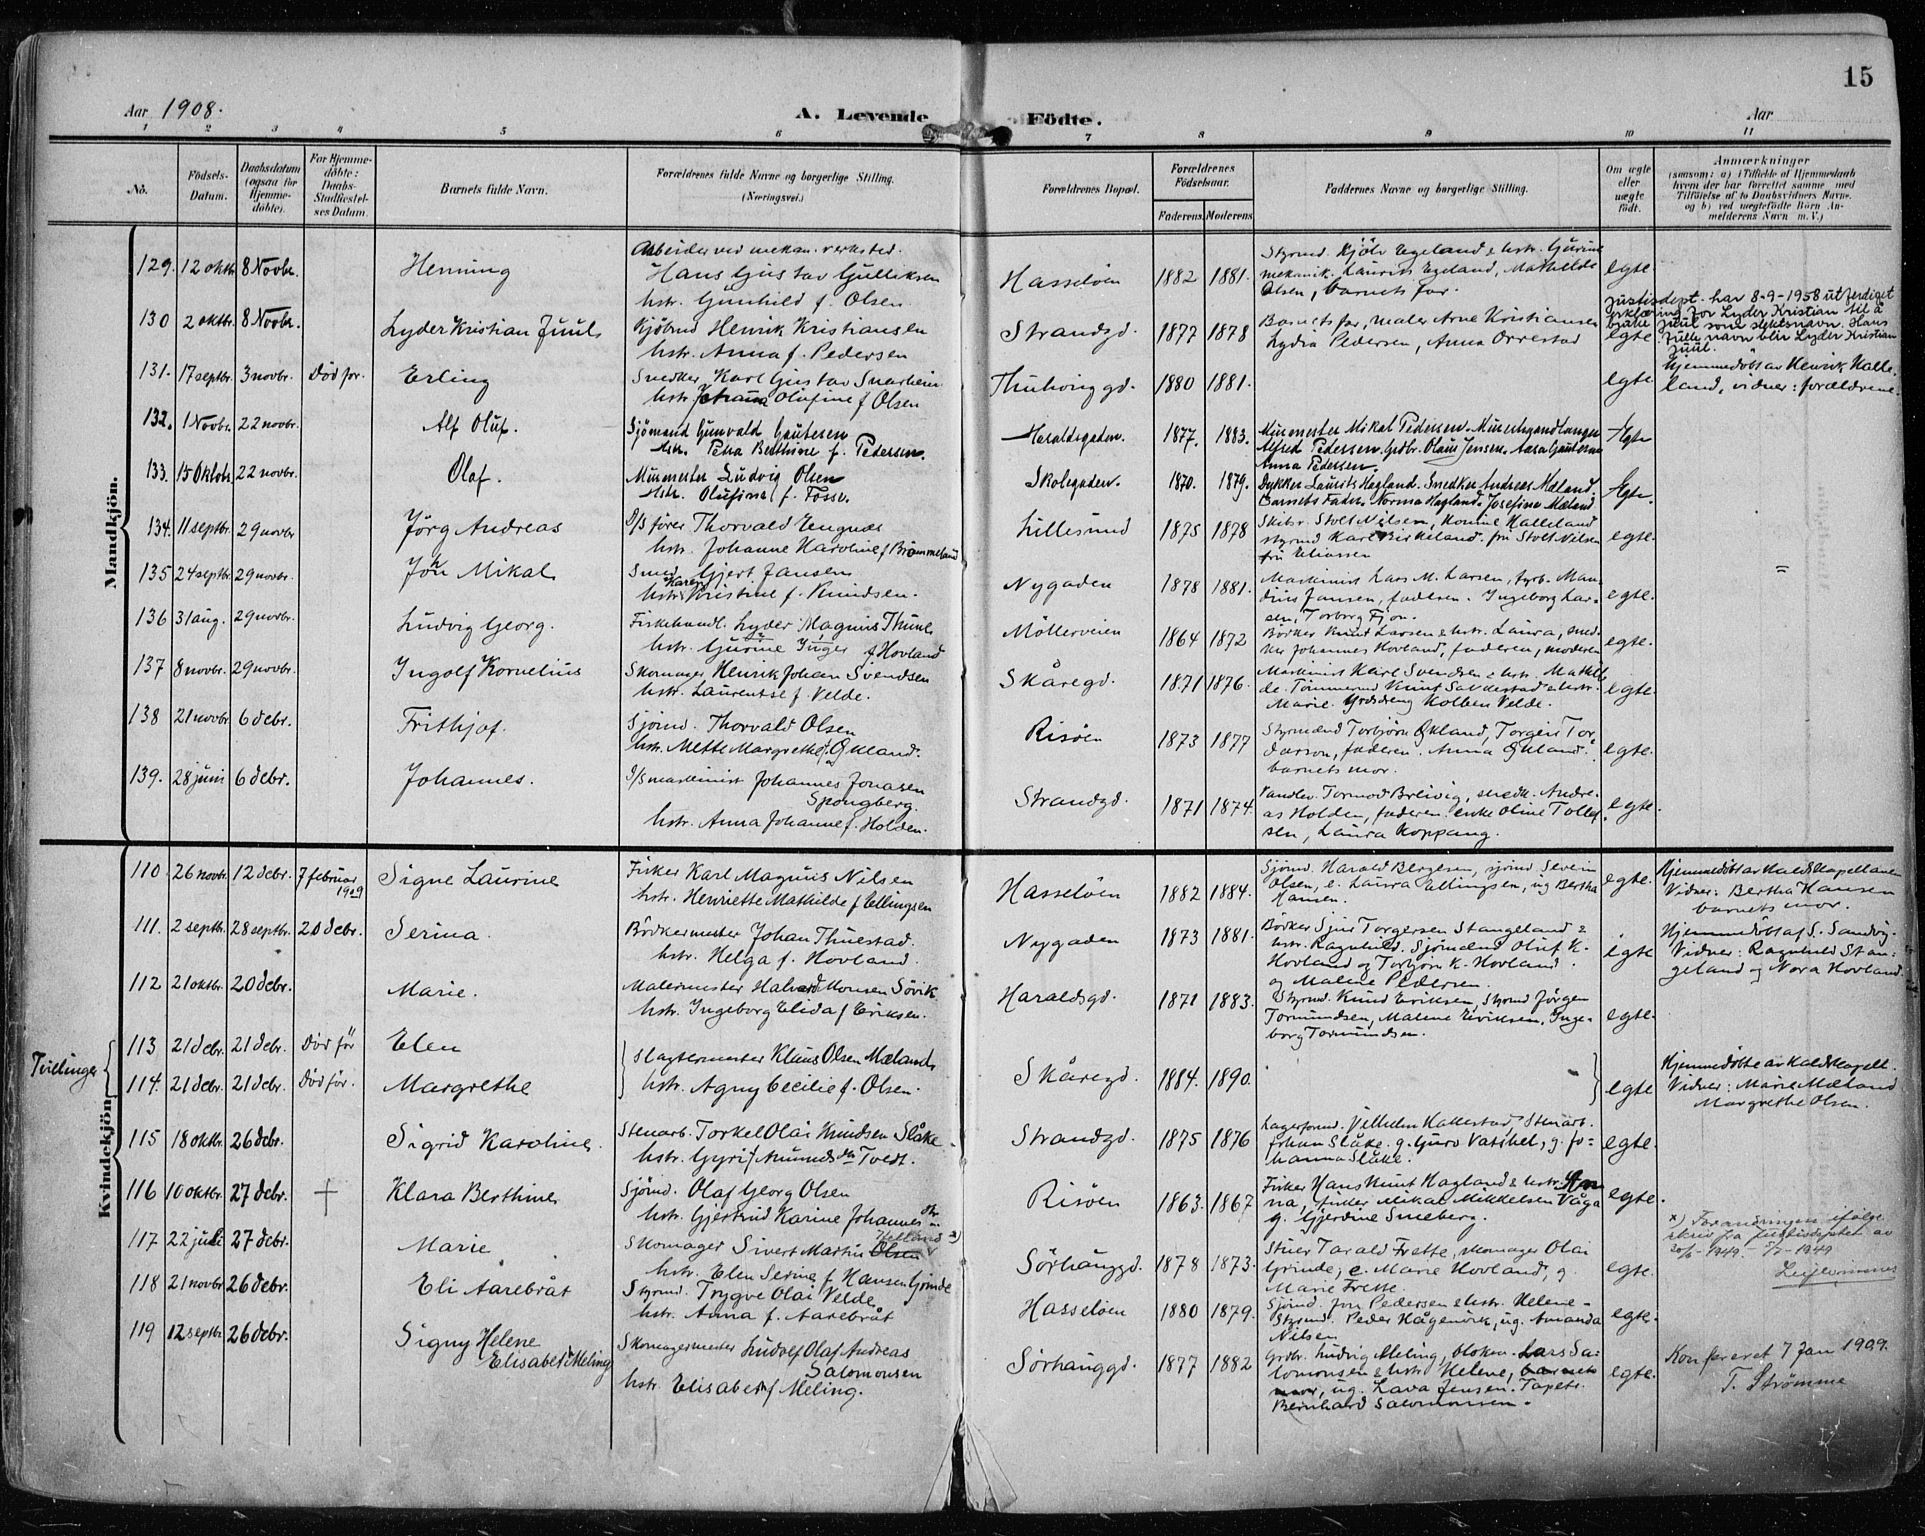 15
Aar 1908.
A. Levende Födte.
Aar
1 2 3 4 5 6 7 8 9 10 11
No.
Födsels-Datum.
Daabsdatum (ogsaa for Hjemme-döbte).
For Hjemme-döbte: Daabs-Stadfæstel-ses Datum.
Barnets fulde Navn.
Forældrenes fulde Navne og borgerlige Stilling. (Næringsvei.)
Forældrenes Bopæl.
Forældrenes Födselsaar.
Faderens. Moderens
Faddernes Navne og borgerlige Stilling.
Om ægte eller uægte födt.
Anmærkninger
(saasom: a) i Tilfælde af Hjemmedaab
hvem der har forrettet samme med
Tilföielse af to Daabsvidners Navne.
og b) ved uægtefödte Börn An-
melderens Navn m. V.)
Mandkjön.
129. 12 oktbr 8 Novbr. Henning
Arbeider ved mekan. verksted.
Hans Gustav Gulliksen
hstr. Gunhild f. Olsen.
Hasseløen 1882 1881.
Styrmd. Kjöle Egeland & hstr. Gurine
mekanik. Laurits Egeland, Mathilde
Olsen, barnets far.
egte.
130 2 oktbr. 8 Novbr. Lyder Kristian Juul
Kjöbmd Henrik Kristiansen
hstr. Anna f. Pedersen
Strandgd. 1877 1878
Barnets far, maler Arne Kristiansen
Lydia Pedersen, Anna Orrestad
egte
Justisdept. har 8-9-1958 utferdiget
erklæring for Lyder Kristian til å
bruke Juul som slektsnavn. Hans
fulle navn blir Lyder Kristian
Juul.
131. 17 septbr. 3 novbr. Död för. Erling
Snedker Karl Gustav Snarheim
hstr. Johanna Olufine f Olsen
Thuhouggd. 1880 1881.
egte
Hjemmedöbt av Henrik Halle-
land, vidner: forældrene.
132. 1 Novbr. 22 novbr. Alf Oluf.
Sjömand Gunvald Gautesen
Hstr. Petra Berthine f. Pedersen.
Haraldsgaden. 1877. 1883.
Murmester Mikal Pedersen. Murerhandlanger
Alfred Pedersen. Grdbr. Olaus Jensen. Aasa Gautesen
Anna Pedersen.
Egte
133. 15 Oktobr. 22 novbr. Olaf.
Murmester Ludvig Olsen
Hstr. Olufine f. Fosse.
Skolegaden. 1870. 1879.
Dykker Laurits Hagland. Snedker Andreas Mæland.
Barnets Fader. Norma Hagland. Josefine Mæland
Egte.
134. 11 septbr. 29 novbr Jörg Andreas
D/S förer Thorvald Engnæs
hstr. Johanne Karoline f Brommeland
Lillesund 1875 1878
Skibsr. Stolt Nilsen, Konine Halleland
styrmd Karl Birkeland. fru Stolt Nilsen
fru Eliassen
egte.
135 24 septbr. 29 novbr. Jon Mikal
Smed Gjert Jansen
hstr. Karen Kristine f. Knudsen.
Nygaden 1878 1881.
Maskinist Lars M. Larsen, fyrb. Man-
dius Jansen, faderen. Ingeborg Lar-
sen, Torborg Fjon.
egte.
=
136 31 aug. 29 novbr. Ludvig Georg.
Fiskehandl. Lyder Magnus Thunes
hstr. Gurine Inger f Hovland
Möllerveien 1864 1872
Börker Knut Larsen & hstr. Laura, sned-
ker Johannes Hovland, faderen, moderen
egte.
137 8 novbr. 29 novbr. Ingolf Kornelius
Skomager Henrik Johan Svendsen
hstr. Laurentse f. Velde.
Skåregd. 1871 1876.
Maskinist Karl Svendsen & hstr. Mathil-
de. Tömmermd Knut Salderstad & hstr.
Marie. Grdsdreng Kolben Velde.
egte.
138 21 novbr 6 debr. Frithjof.
Sjömd. Thorvald Olsen
hstr. Mette Margrethe f Økland.
Risöen 1873 1877
Styrmand Torbjörn Økland, Torgeir Tor-
darson, faderen. Anna Økland.
barnets mor.
egte.
139. 28 juni 6 debr. Johannes.
D/S maskinist Johannes Jonasen
Spongberg.
hstr. Anna Johanne f. Holden.
Strandgd. 1871 1874.
Vandlev. Tormod Breivig, snedk. Andre-
as Holden, faderen. enke Oline Tollef-
sen, Laura Koppang.
egte.
Kvindekjön
110 26 novbr. 12 debr. 7 februar 1909 Signe Laurine
Fisker Karl Magnus Nilsen
hstr. Henriette Mathilde f Ellingsen
Hasselöen 1882 1884.
Sjömd. Harald Bergesen, sjömd Severin
Olsen, e. Laura Ellingsen, ug Bertha
Hansen.
egte.
Hjemmedöbt av Kaldskapellanen
Vidner: Bertha Hansen
barnets mor.
111. 2 septbr. 28 septbr. 20 debr. Serina.
Bödkermester Johan Thuestad.
hstr. Helga f. Hovland.
Nygaden 1873 1881.
Börker Sjur Torgersen Stangeland &
hstr. Ragnhild. Sjömænd Oluf K.
Hovland og Torbjörn K. Hovland.
og Malene Pedersen.
egte
Hjemmedöbt af S. Sandvig.
Vidner: Ragnhild Stan-
geland og Nora Hovland.
112 21 oktbr. 20 debr. Marie.
Malermester Halvard Monsen Sövik
hstr. Ingeborg Elida f Eriksen.
Haraldsgd. 1871 1883.
Styrmd. Knud Eriksen, Styrmd Jörgen
Tormundsen, Malene Eriksen, Inge-
borg Tormundsen.
egte.
Tvillinger
113 21 debr. 21 debr. Död för Elen
114. 21 debr. 21 debr. Död för. Margrethe
Slagtermester Klaus Olsen Mæland
hstr. Agny Cecilie f. Olsen.
Skåregd. 1884. 1890.
egte
Hjemmedöbte av Kaldskapell.
Vidner: Marie Mæland
Margrethe Olsen.
115 18 oktbr. 26 debr. Sigrid Karoline.
Stenarb. Torkel Olai Knudsen Slåke
hstr. Gyri f Amundsdtr Tvedt.
Strandgd. 1875 1876
Lagerformd. Vilhelm Hallestad, Stenarb.
Johan Slåke. g. Guro Vatshel, g. Jo-
hanna Slåke.
egte.
116 10 oktbr. 27 debr. + Klara Berthine
Sjömd. Olaf Georg Olsen
hstr. Gjertrud Karine Johannesdtr
Risöen 1863. 1867
Fisker Hans Knut Hagland & hstr. An-
na, fisker Mikal Mikkelsen Våga
g. Gjerdine Smeberg.
egte.
117 22 juli 27 debr. Marie
Helland x)
Skomager Sivert Martin Olsen
hstr. Elen Serine f. Hansen Grinde
Sörhauggd. 1878 1873.
Stuer Tarald Frette, skomager Olai
Grinde, e. Marie Hovland, g.
Marie Frette.
egte.
x) Forandringen ifølge
skriv fra Justisdeptet av
20/6-1949. - 5/7-1949
118 21 novbr 26 debr. Eli Aarebråt
Styrmd. Trygve Olai Velde
hstr. Anna f. Aarebråt
Hasselöen 1880 1879.
Sjömd. Jon Pedersen & hstr. Helene.
Styrmd. Peder Hågenvik, ug. Amanda
Nilsen
egte.
119 12 septbr 26 debr. Signy Helene
Elisabeth Meling
Skomagermester Ludolf Olaf Andreas
Salomonsen
hstr. Elisabeth f Meling.
Sörhauggd. 1877 1882
Grdbr. Ludvig Meling, blokm. Lars Sa-
lomonsen & hstr Helene, barnets
mor, ug. Lava Jensen. Tapets.
Bernhard Salomonsen.
egte.
Konfereret 7 Jan 1909.
T. Strömme